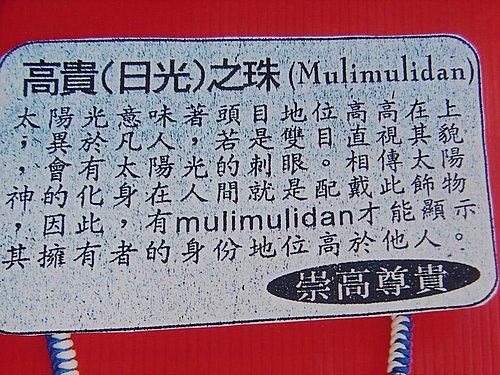 高貴(日光)之珠(Mulimulidan)
太陽光意味著頭目地位高高在上
，異於凡人，若是雙目直視其貌
，會有太陽光的刺眼。相傳太陽
神的化身在人間就是配戴此飾物
，因此，有mulimulidan才能顯示
其擁有者的身份地位高於他人。
崇高尊貴